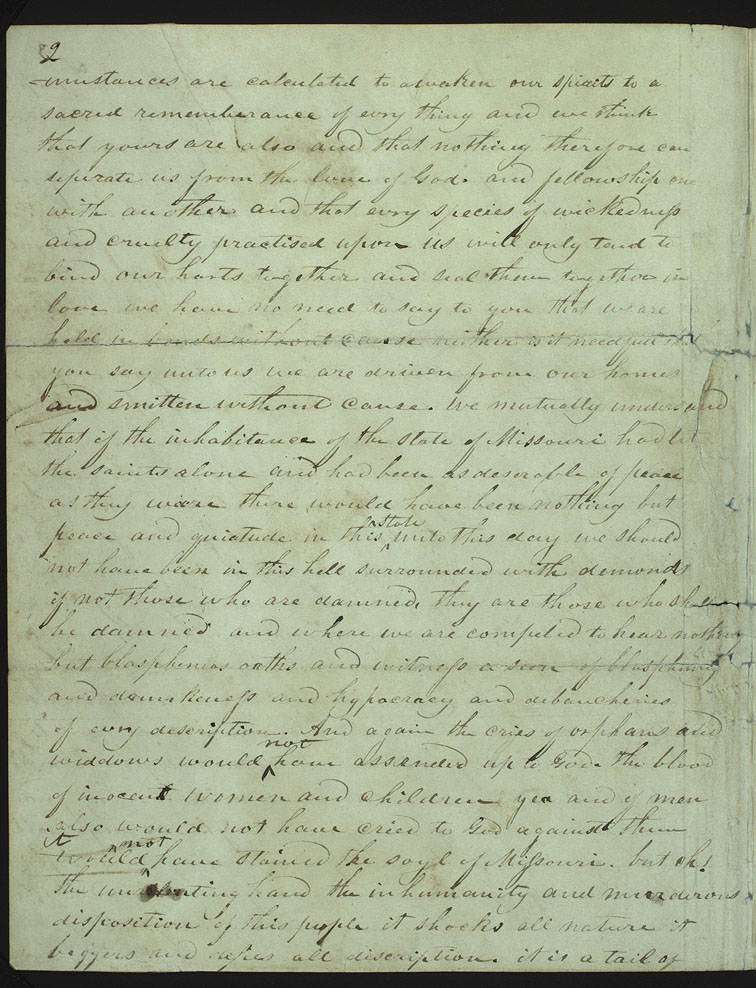 2
-cumstances are calculated to awaken our spirits to a
sacred rememberance of evry thing and we think
that yours are also and that nothing therefore can
seperate us from the love of God. and fellowship one
with another and that evry species of wickedness
and cruelty practised upon us will only tend to
bind our harts together and seal them together in
love we have no need to say to you that we are
held in bonds without cause neither is it needful that
you say unto us we are driven from our homes
and smitten without cause. We mutually understand
that if the inhabitance of the state of Missouri had let
the saints alone and had been as deserable of peace
as they ware there would have been nothing but
peace and quiatude in this State unto this day we should
not have been in this hell surrounded with demonds
if not those who are damned, they are those who shall
be damned and where we are compeled to hear nothing
but blasphemos oaths and witness a seen of blasphemy
and drunkeness and hypocracy and debaucheries
of evry description. And again the cries of orphans and
widdows would not have assended up to God. the blood
of inocent women and children yea and of men
also would not have cried to God against them
it would not have stained the soyl of Missouri. but oh!
the unrelenting hand the inhumanity and murderous
disposition of this people it shocks all nature it
beggers and defies all discription. it is a tail of